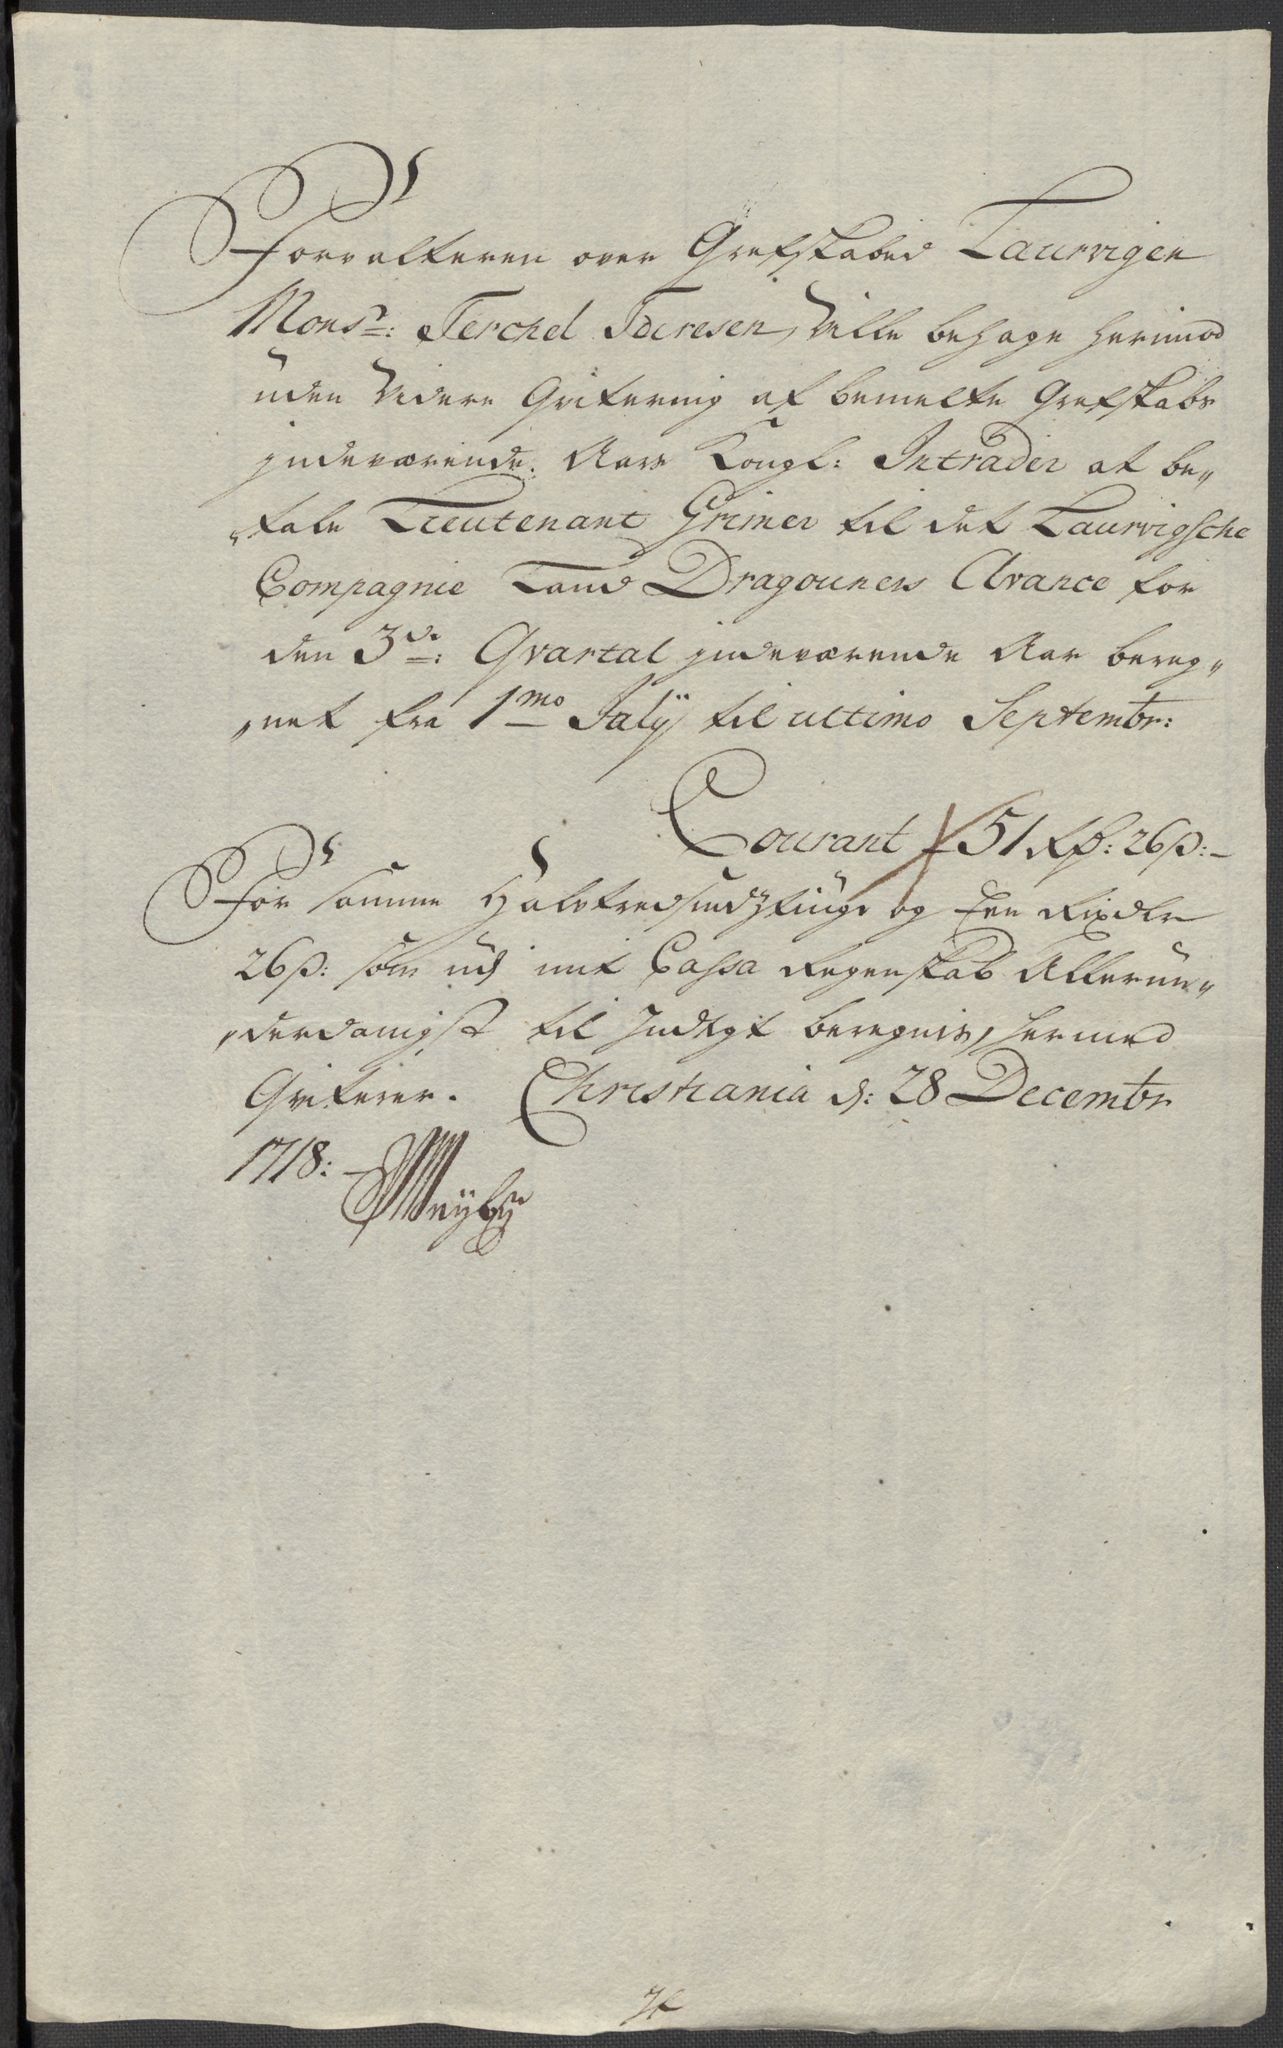 Forvalteren over Grefskabed Laurvigen
Monsr: Terchel Toresen, Ville behage herimod
uden Videre Qvitering af bemelte Grefskabs
indeværende Aars Kongl: Intrader at be,,
,,tale Lieutenant Grimer til det Laurvigsche
Compagnie Land Dragouners Avance for
den 3de: Qvartal indeværende Aar bereg,,
,,net fra 1mo July til ultimo Septembr:
Courant 51 Rdr: 26 s:
For samme Halvtredsindztiuge og Een Rixdlr
26 s: som udj mit Cassa Regenskab Allerun,,
,,derdanigst til Indtegt beregnis, hermed
Qviterer. Christiania d: 28 Decembr
1718: